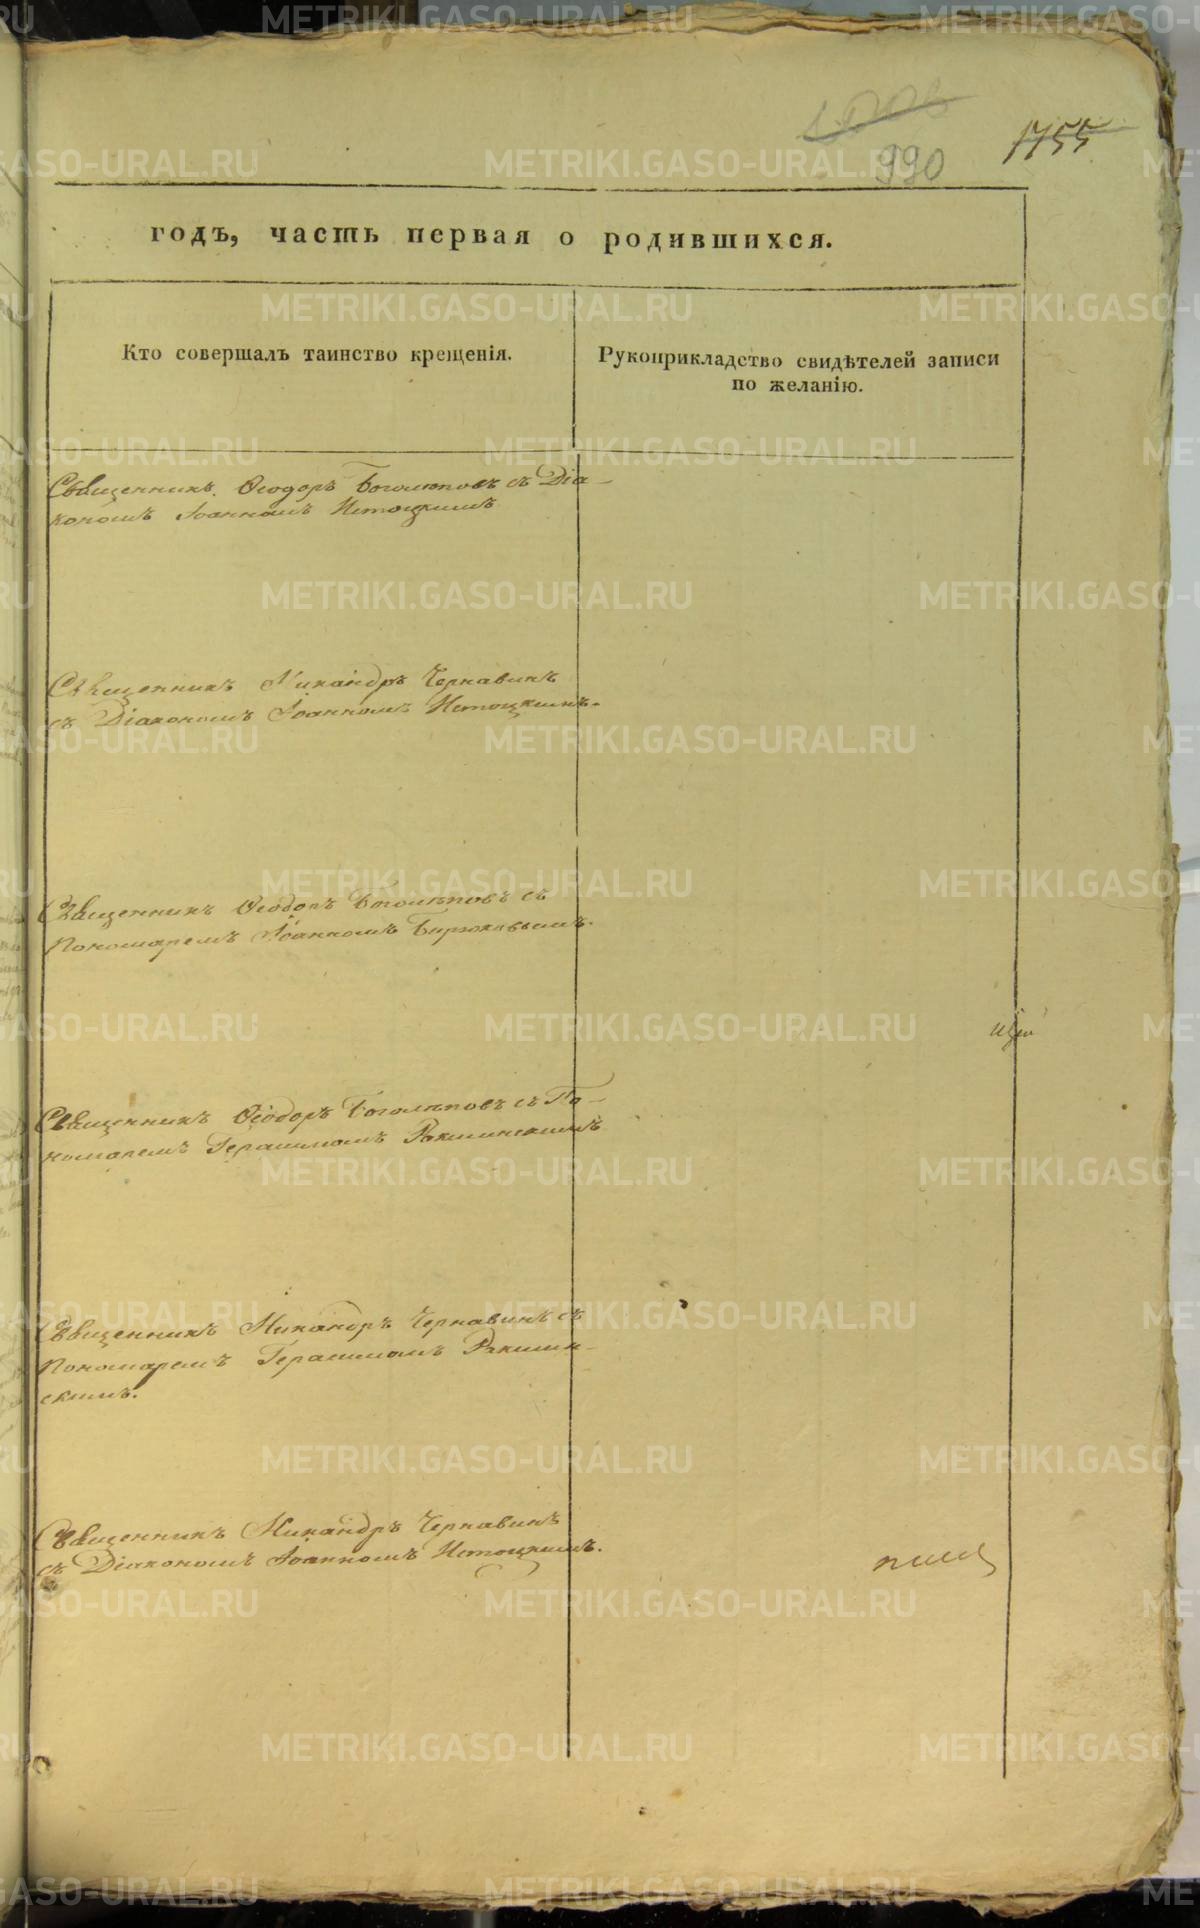 990
1755
годъ, часть первая о родившихся.
Кто совершалъ таинство крещенія.
Рукоприкладство свидѣтелей записи
по желанію.
Священникъ Ѳеодоръ Боголѣповъ съ Діа-
кономъ Іоанномъ Истоцкимъ
Священникъ Никандръ Чернавинъ
съ Діакономъ Іоанномъ Истоцкимъ.
Священникъ Ѳеодоръ Боголѣповъ съ
Пономаремъ Іоанномъ Бирюковымъ.
Священникъ Ѳеодоръ Боголѣповъ съ По-
номаремъ Герасимомъ
Священникъ Никандръ Чернавинъ съ
Пономаремъ Герасимомъ
скимъ.
Священникъ Никандръ Чернавинъ
съ Діакономъ Іоанномъ Истоцкимъ.
METRIKI.GASO-URAL.RU